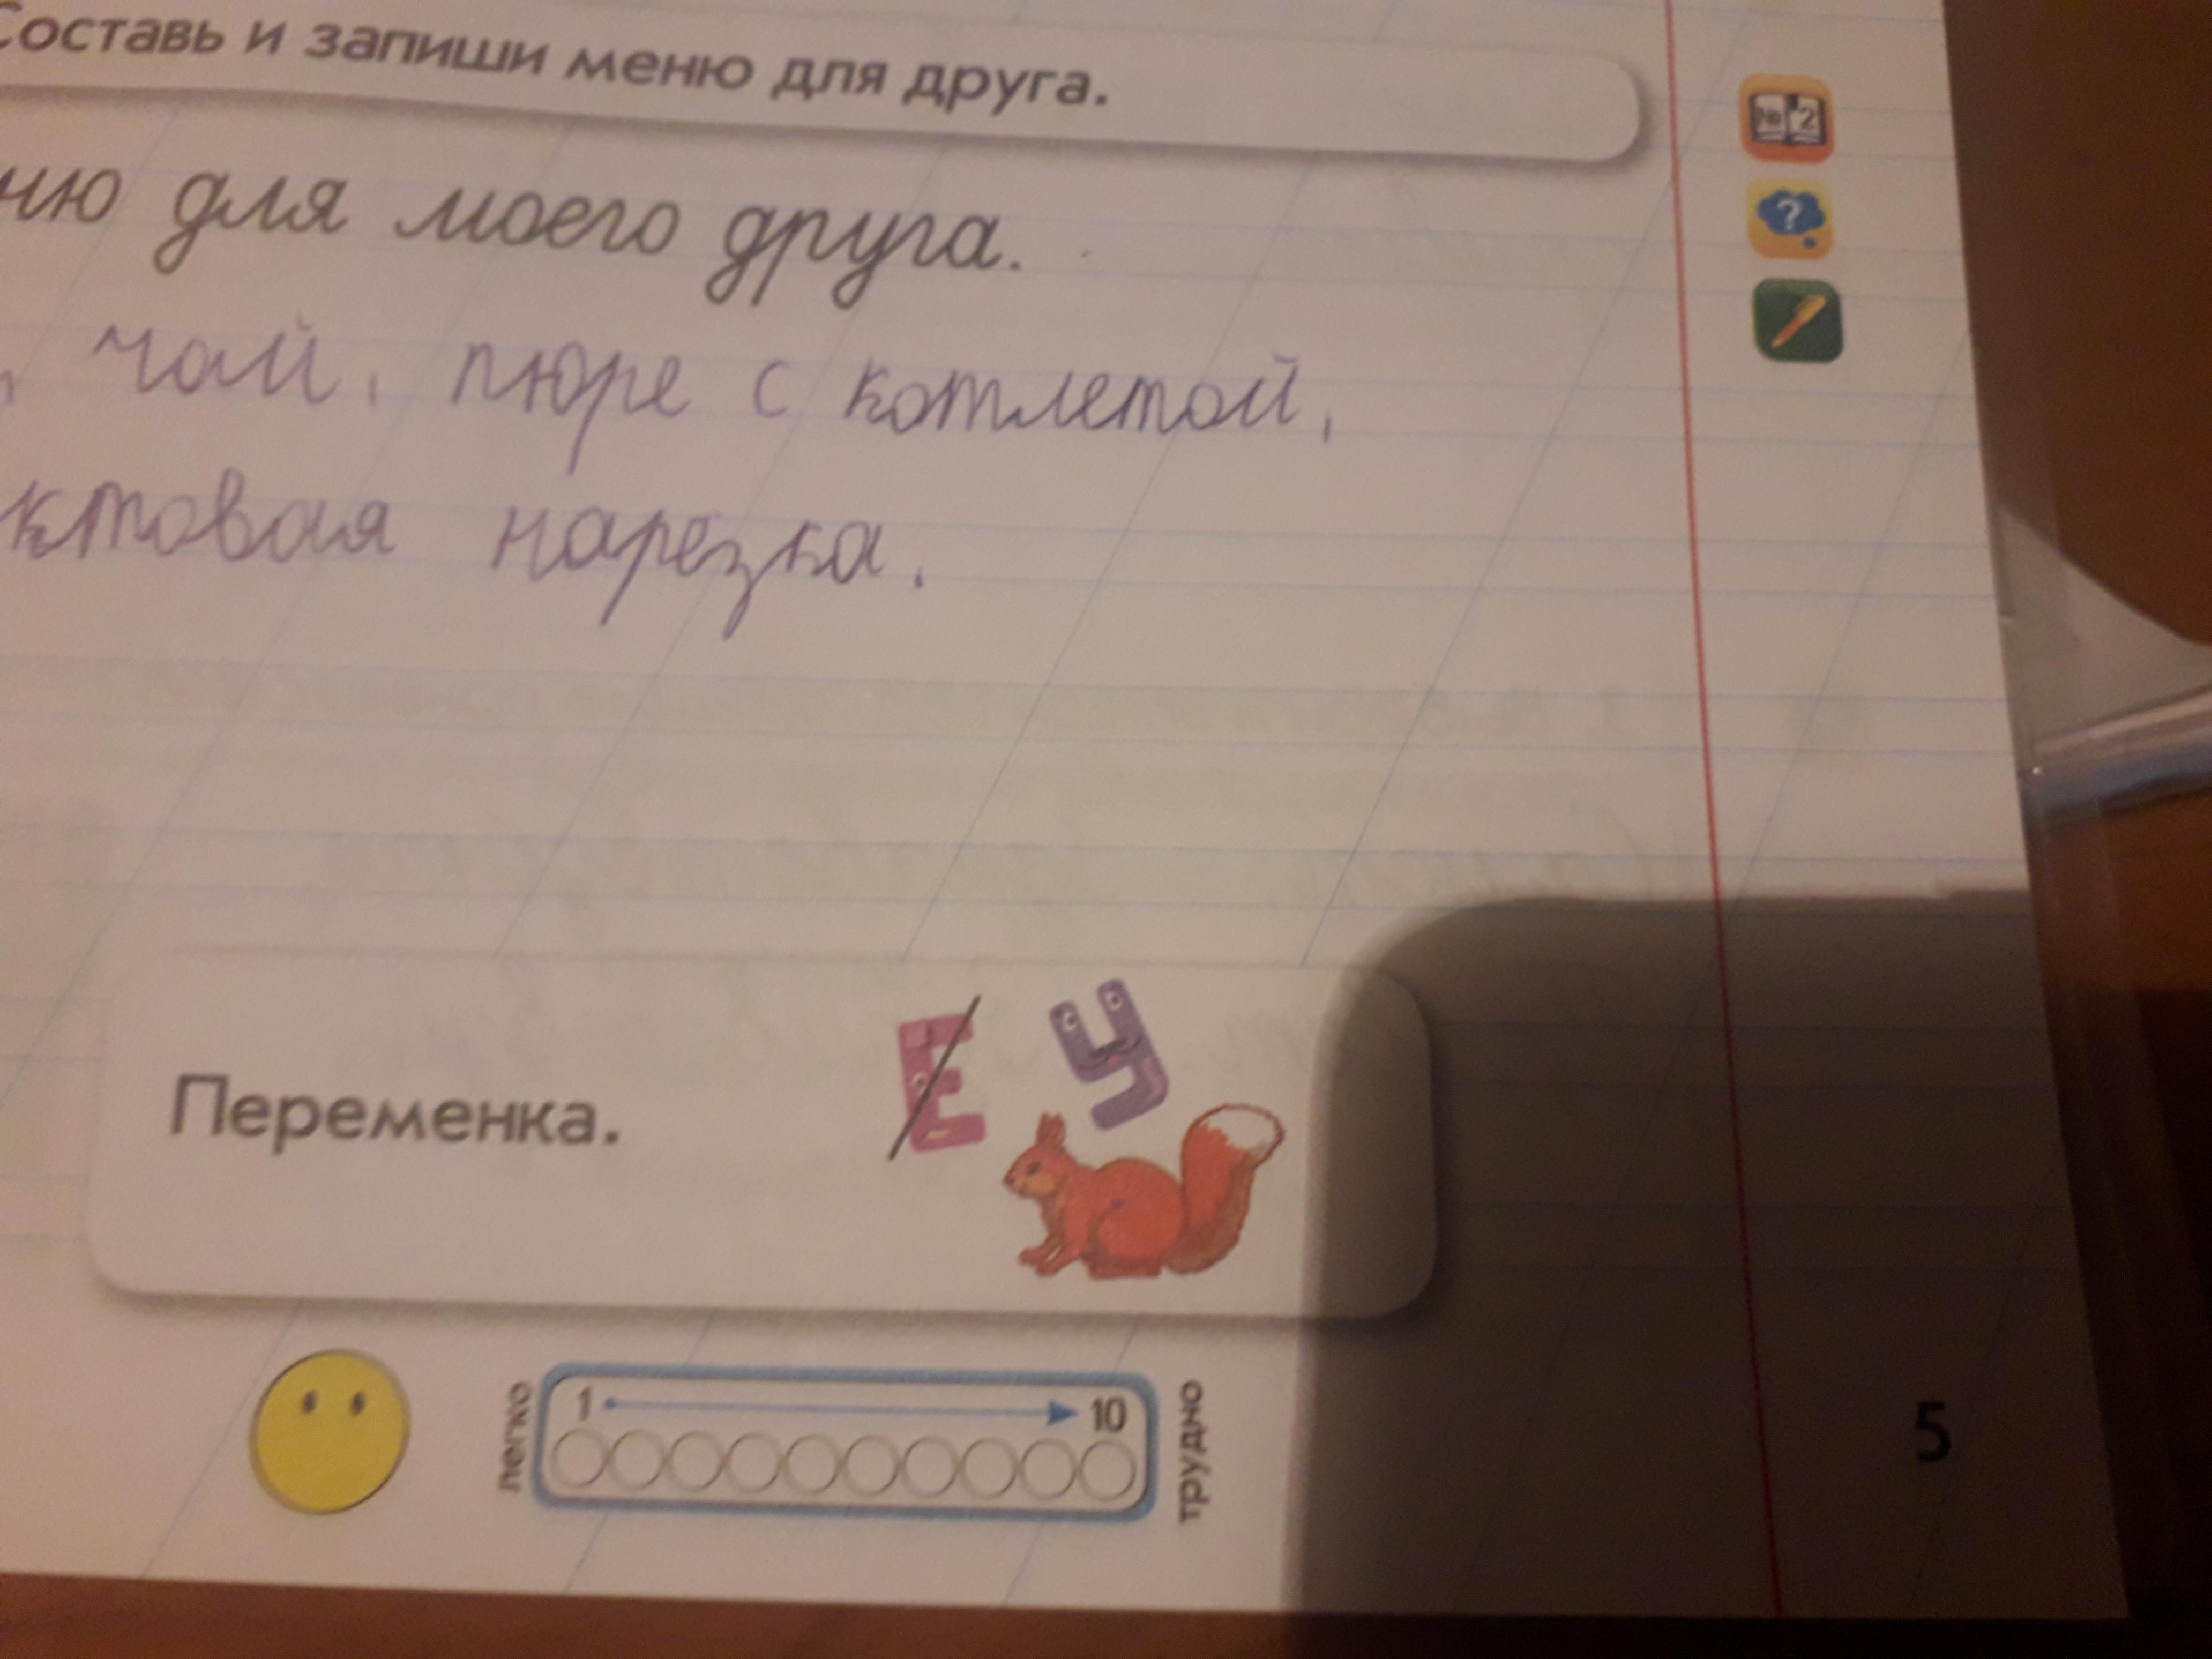 Составь и запиши меню для друга.
№ 2
?
ню для моего друга.
, чай, пюре с котлетой,
ктовая нарезка.
Переменка.
Е У
легко 1 10 трудно
5